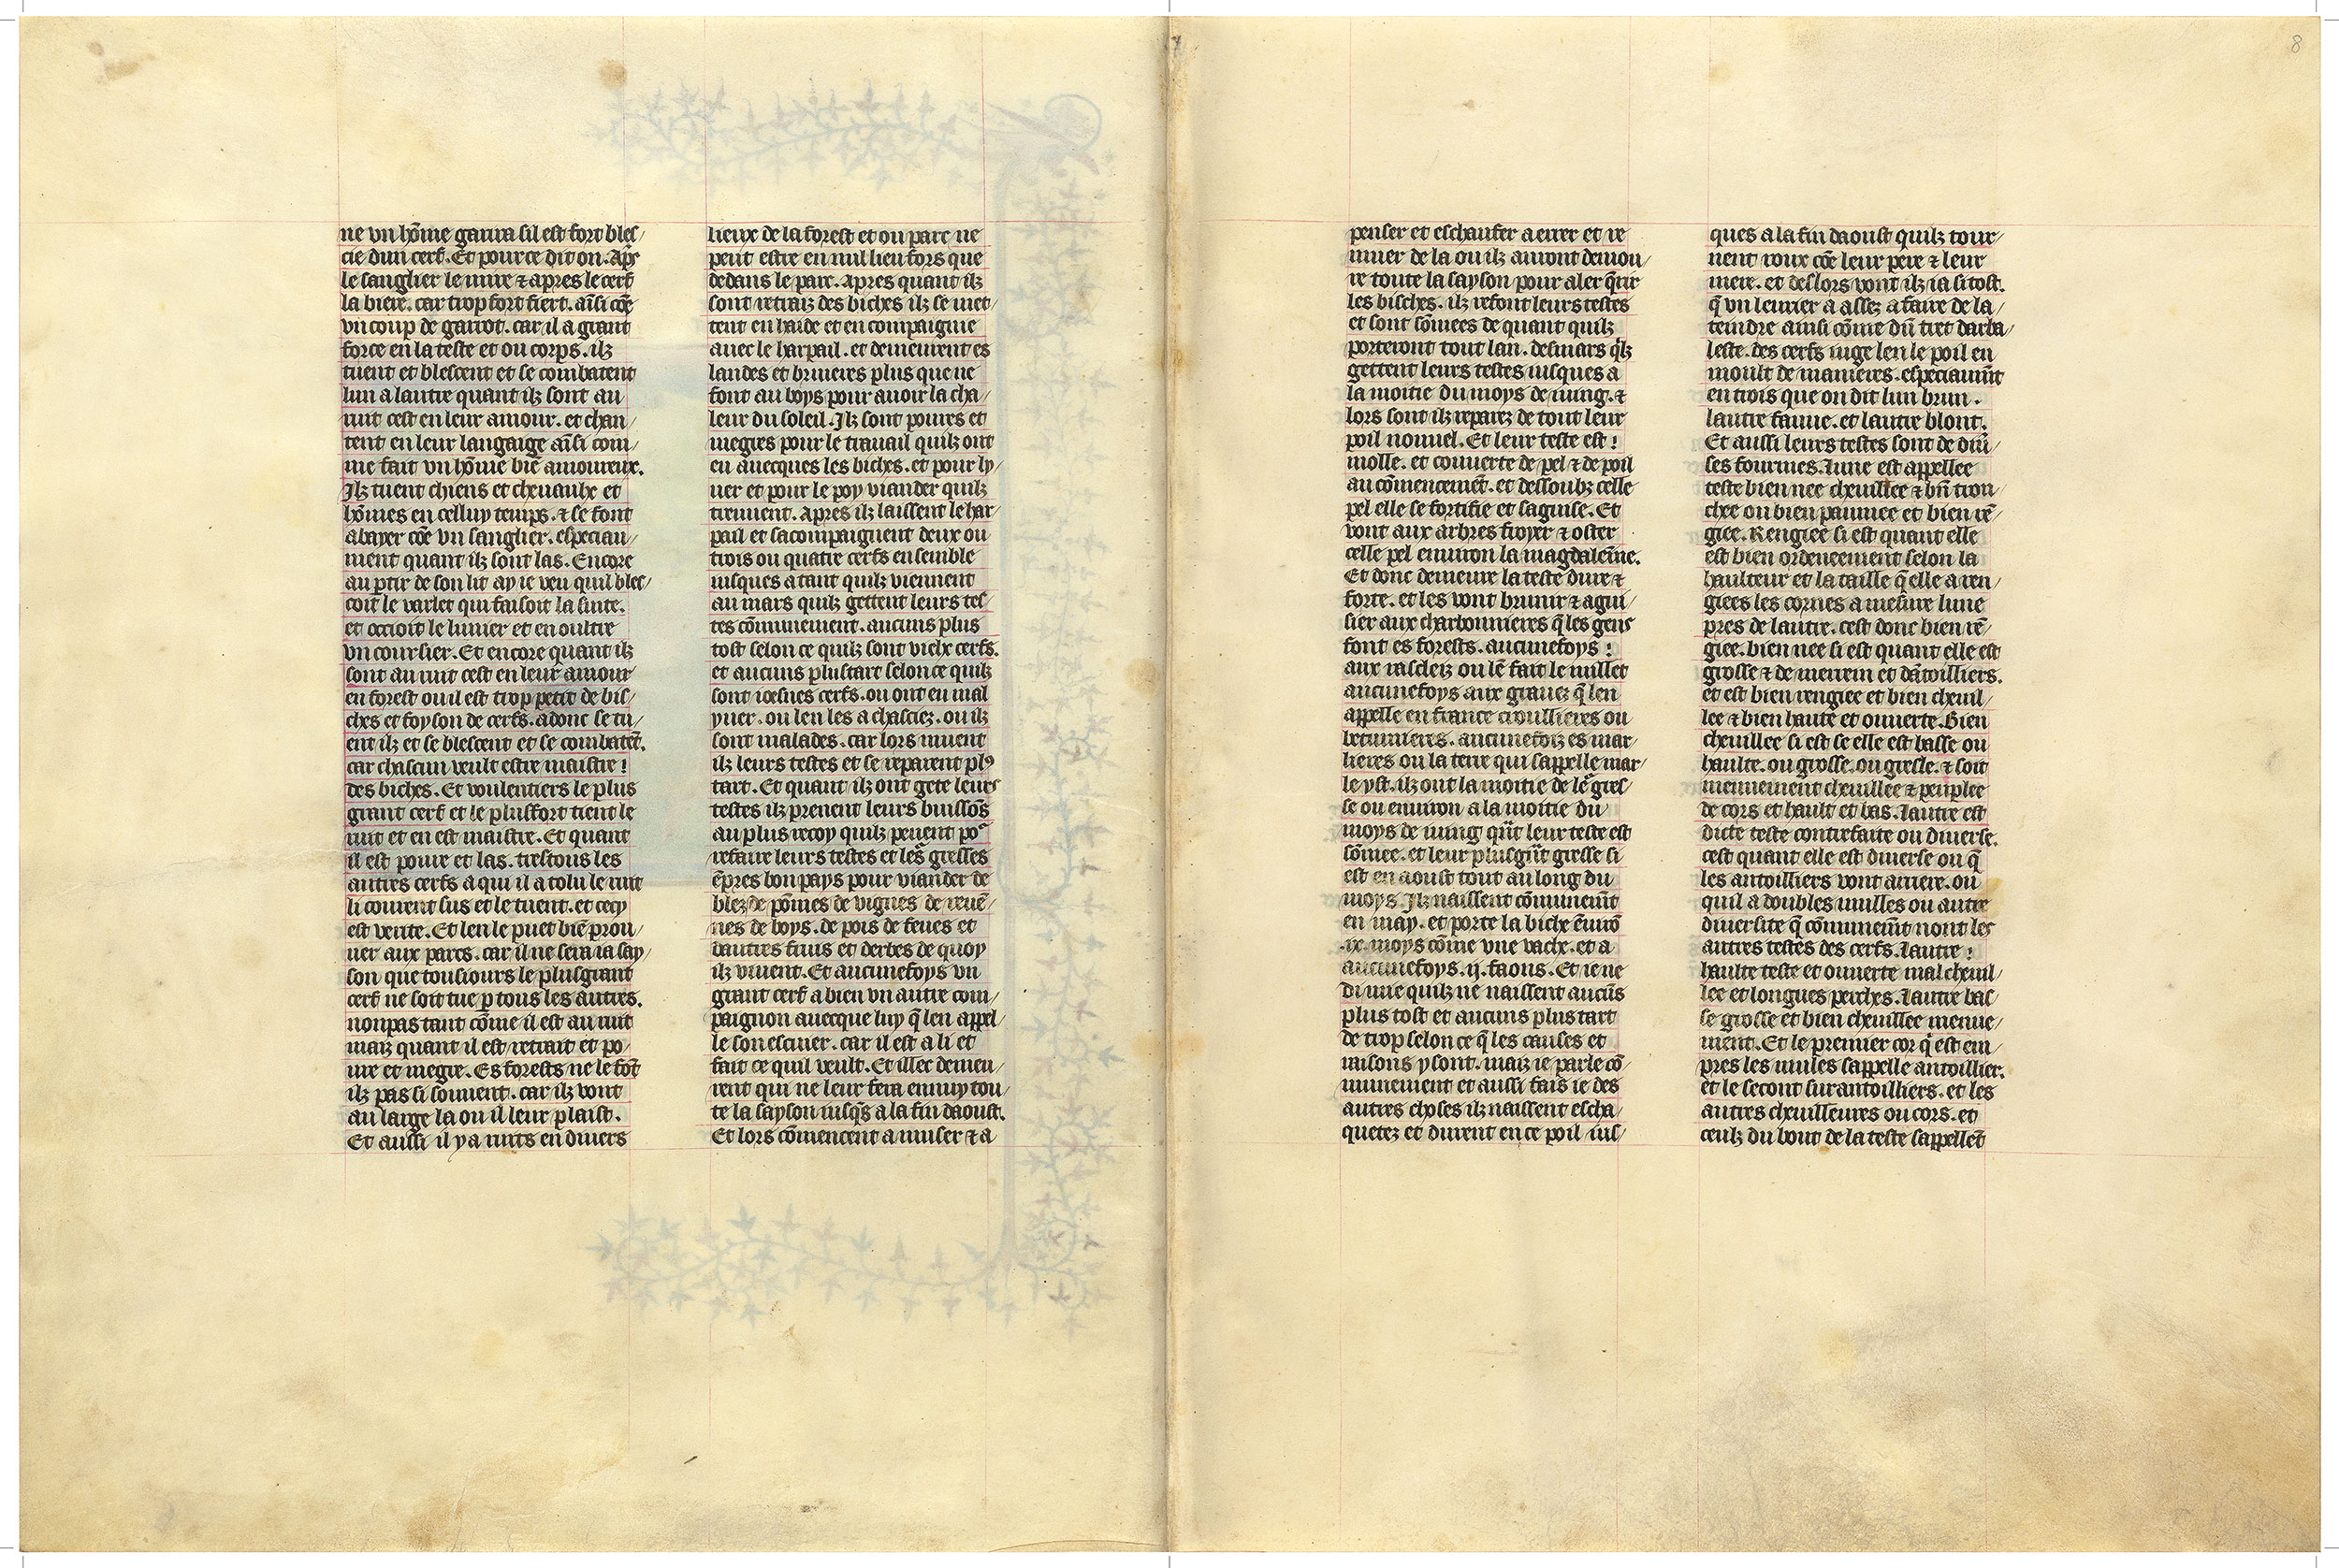 ne vn hõme garira sil est fort bles/
cie dun cerf. Et pour ce dit on. Apr̃
le sanglier le mire ⁊ apres le cerf
la biere. car trop fort fiert. aĩsi cõe
vn coup de garrot. car il a grant
force en la teste et ou corps. ilz
tuent et blescent et se combatent
lun a lautre quant ilz sont au
ruit cest en leur amour. et chan/
tent en leur langaige aĩsi com/
me fait vn hõme biẽ amoureux.
Ilz tuent chiens et cheuaulx et
hõmes en celluy temps. ⁊ se font
abayer cõe vn sanglier. especiau/
ment quant ilz sont las. Encore
au p̱tir de son lit ay ie veu quil bles/
coit le varlet qui faisoit la suite.
et occioit le limier et en oultre
vn coursier. Et encore quant ilz
sont au ruit cest en leur amour
en forest ou il est trop petit de bis/
ches et foyson de cerfs. adonc se tu/
ent ilz et se blescent et se combatẽt.
car chascun veult estre maistre!
des biches. Et voulentiers le plus
grant cerf et le plus fort tient le
ruit et en est maistre. Et quant
il est poure et las. trestous les
autres cerfs a qui il a tolu le ruit
li courent sus et le tuent. et cecy
est verite. Et len le puet biẽ prou/
uer aux parcs. car il ne sera ia say/
son que tousiours le plus grant
cerf ne soit tue p̱ tous les autres.
non pas tant cõme il est au ruit
maiz quant il est retrait et po/
ure et megre. Es forests ne le fõt
ilz pas si souuent. car ilz vont
au large la ou il leur plaist.
Et aussi il y a ruits en diuers
lieux de la forest et ou parc ne
peut estre en nul lieu fors que
dedans le parc. Apres quant ilz
sont retraiz des biches ilz se met/
tent en harde et en compaignie
auec le harpail. et demeurent es
landes et bruieres plus que ne
font au boys pour auoir la cha/
leur du soleil. Ilz sont poures et
megres pour le trauail quilz ont
eu auecques les biches. et pour ly/
uer et pour le poy viander quilz
treuuent. Apres ilz laissent le har/
pail et sacompaignent deux ou
trois ou quatre cerfs ensemble
iusques a tant quilz viennent
au mars quilz gettent leurs tes/
tes cõmunement. aucuns plus
tost selon ce quilz sont vielx cerfs.
et aucuns plus tart selon ce quilz
sont ioesnes cerfs. ou ont eu mal
yuer. ou len les a chasciez. ou ilz
sont malades. car lors muent
ilz leurs testes et se reparent plꝰ
tart. Et quant ilz ont gete leurs
testes ilz prenent leurs buissõs
au plus recoy quilz peuent poʳ
refaire leurs testes et lers gresses
ẽpres bon pays pour viander de
blez de põmes de vignes de reuẽ/
nes de boys. de pois de feues et
dautres fruis et derbes de quoy
ilz viuent. Et aucunefoys vn
grant cerf a bien vn autre com/
paignon auecque luy q̃ len appel/
le son escuier. car il est a li et
fait ce quil veult. Et illec demeu/
rent qui ne leur fera ennuy tou/
te la sayson iusq̃s a la fin daoust.
Et lors cõmencent a muser ⁊ a
penser et eschaufer a errer et re
muer de la ou ilz auront demou/
re toute la sayson pour aler q̃rir
les bisches. ilz refont leurs testes
et sont sõmees de quant quilz
porteront tout lan. des mars q̃lz
gettent leurs testes iusques a
la moitie du moys de iuing. ⁊
lors sont ilz reparez de tout leur
poil nouuel. Et leur teste est!
molle. et couuerte de pel ⁊ de poil
au cõmencemẽt. et dessoubz celle
pel elle se fortifie et saguise. Et
vont aux arbres froyer ⁊ oster
celle pel enuiron la magdaleine.
Et donc demeure la teste dure ⁊
forte. et les vont brunir ⁊ agui/
sier aux charbonnieres q̃ les gens
font es forests. aucunefoys!
aux rascleiz ou lẽ fait le millet
aucunefoys aux grauez q̃ len
appelle en france croullieres ou
betumieres. aucunefoiz es mar/
lieres ou la terre qui sappelle mar/
le yst. ilz ont la moitie de lẽ gres/
se ou enuiron a la moitie du
moys de iuing q̃nt leur teste est
sõmee. et leur plus grãt gresse si
est en aoust tout au long du
moys. Ilz naissent cõmunemẽt
en may. et porte la biche ẽuirõ
.ix. moys cõme vne vache. et a
aucunefoys .ij. faons. Et ie ne
di mie quilz ne naissent aucũs
plus tost et aucuns plus tart
de trop selon ce q̃ les causes et
raisons y sont. maiz ie parle cõ/
munement et aussi fais ie des
autres choses ilz naissent escha/
quetez et durent en ce poil ius/
ques a la fin daoust quilz tour/
nent roux cõe leur pere ⁊ leur
mere. et deslors vont ilz ia si tost.
q̃ vn leurier a assez a faire de la/
teindre ainsi cõme dũ tret darba/
leste. des cerfs iuge len le poil en
moult de manieres. especiaumẽt
en trois que on dit lun brun.
lautre fauue. et lautre blont.
Et aussi leurs testes sont de diũ/
ses fourmes. Lune est appellee
teste bien nee cheuillee ⁊ bñ tron/
chee ou bien paumee et bien rẽ/
giee. Rengiee si est quant elle
est bien ordeneement selon la
haulteur et la taille q̃ elle a ren/
giees les cornes a mesure lune
pres de lautre. cest donc bien rẽ/
giee. bien nee si est quant elle est
grosse ⁊ de merrem et dãtoilliers.
et est bien rengiee et bien cheuil/
lee ⁊ bien haute et ouuerte. Bien
cheuillee si est se elle est basse ou
haulte. ou grosse. ou gresle. ⁊ soit
menuement cheuillee ⁊ peuplee
de cors et hault et bas. Lautre est
dicte teste contrefaite ou diuerse.
cest quant elle est diuerse ou q̃
les antoilliers vont arriere. ou
quil a doubles mulles ou autre
diuersite q̃ cõmunemẽt nont les
autres testes des cerfs. Lautre!
haulte teste et ouuerte mal cheuil/
lee et longues perches. Lautre bas/
se grosse et bien cheuillee menue/
ment. Et le premier cor q̃ est em/
pres les mules sappelle antoillier.
et le secont surantoilliers. et les
autres cheuilleures ou cors. et
ceulz du bout de la teste sappellẽt
8